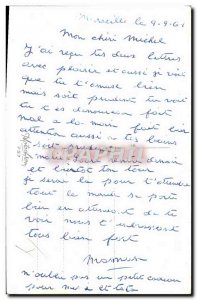 Marseille le 9-9-61
Mon chéri Michel
J'ai reçu tes deux lettres
avec plaisir et aussi je vois
que tu t'amuse bien
mais soit prudent tu vois
tu t'es demoureu fait
mal a la main fait bien
attention aussi a tes bains
soit
demain
et bientot ton tour
je serai la pour t'attendre
tout le monde se porte
bien en attendant de te
voir nous t'embrassont
tous bien fort
Maman
n'oublie pas un petit
pour moi et tata